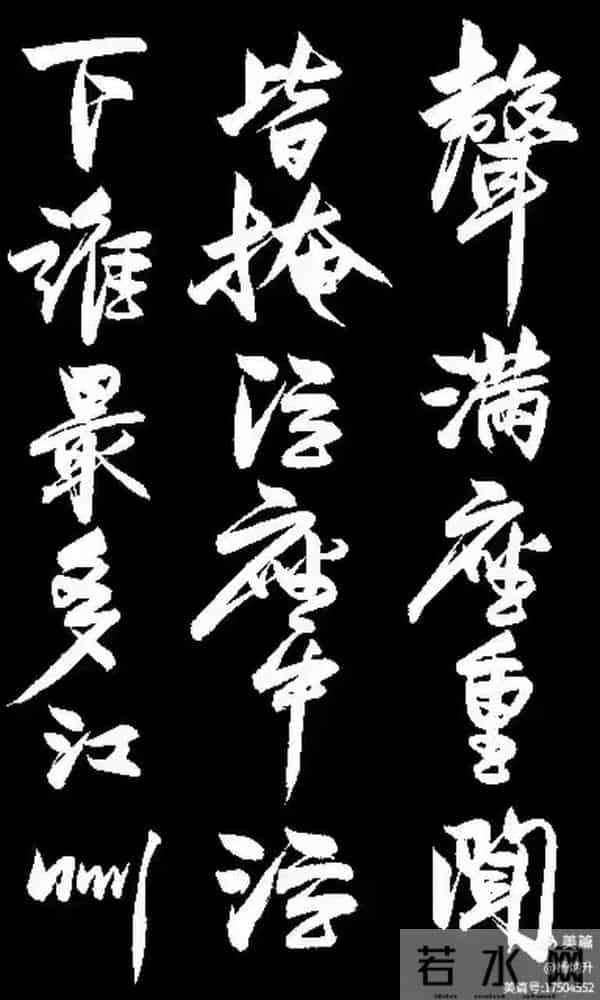 聲滿座重聞
皆掩泣座中泣
下誰最多江州
美篇
美篇号:17504552
若水网